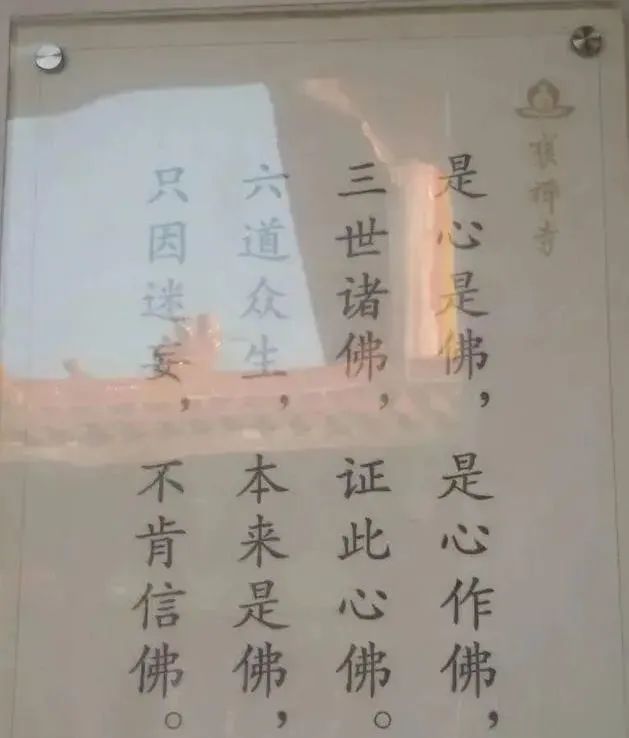 禅寺
是心是佛，是心作佛，
三世诸佛，证此心佛。
六道众生，本来是佛，
只因迷妄，不肯信佛。